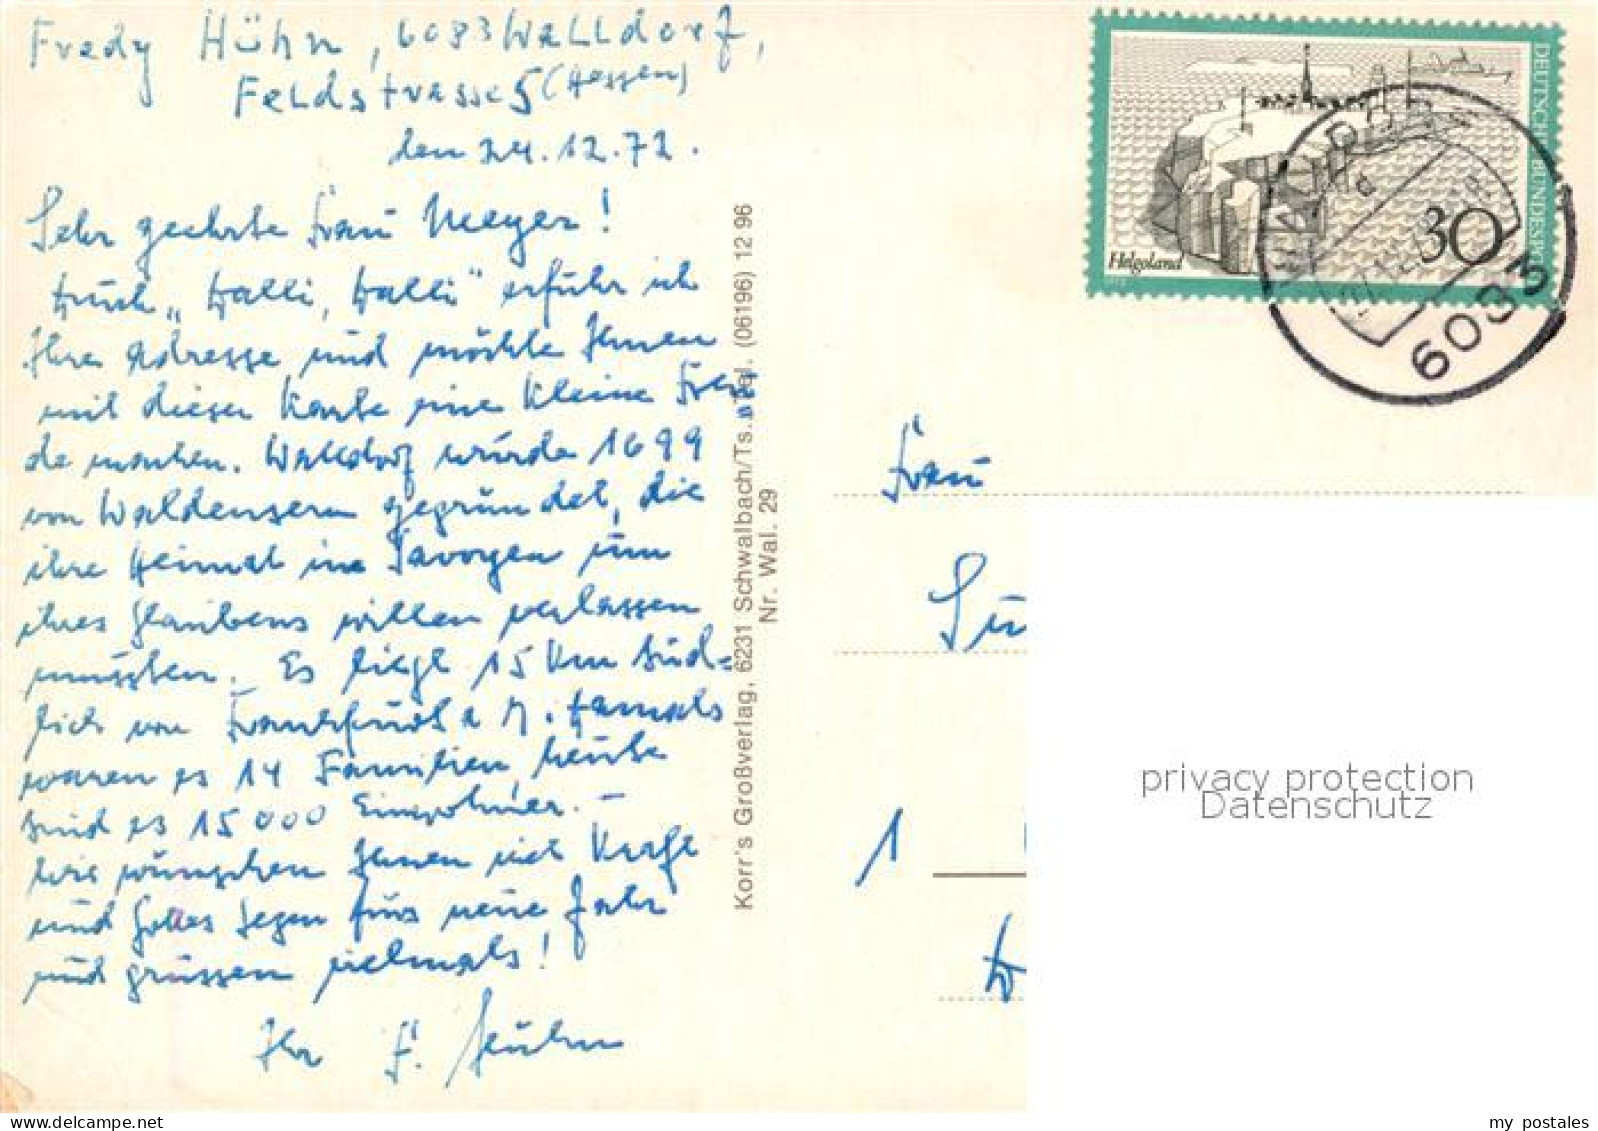 Fredy Hühn, 6083 Walldorf,
Feldstrasse 5 (Hessen)
den 24.12.72.
Sehr geehrte Frau Meyer!
Durch "Halli, Halli" erfuhr ich
Ihre Adresse und möchte Ihnen
mit dieser Karte eine kleine Freu
de machen. Walldorf wurde 1699
von Waldensern gegründet, die
ihre Heimat in Savoyen um
ihres Glaubens willen verlassen
mussten. Es liegt 15 km süd=
lich von Frankfurt a M. Damals
waren es 14 Familien, heute
sind es 15000 Einwohner. –
Wir wünschen Ihnen viel Kraft
und Gottes Segen fürs neue Jahr
und grüssen vielmals!
Ihr F. Hühn
Korr's Großverlag, 6231 Schwalbach/Ts. Tel. (06196) 12 96
Nr. Wal. 29
DEUTSCHE BUNDESPOST
Helgoland
30
6083
Frau
Su
1
privacy protection
Datenschutz
my postales